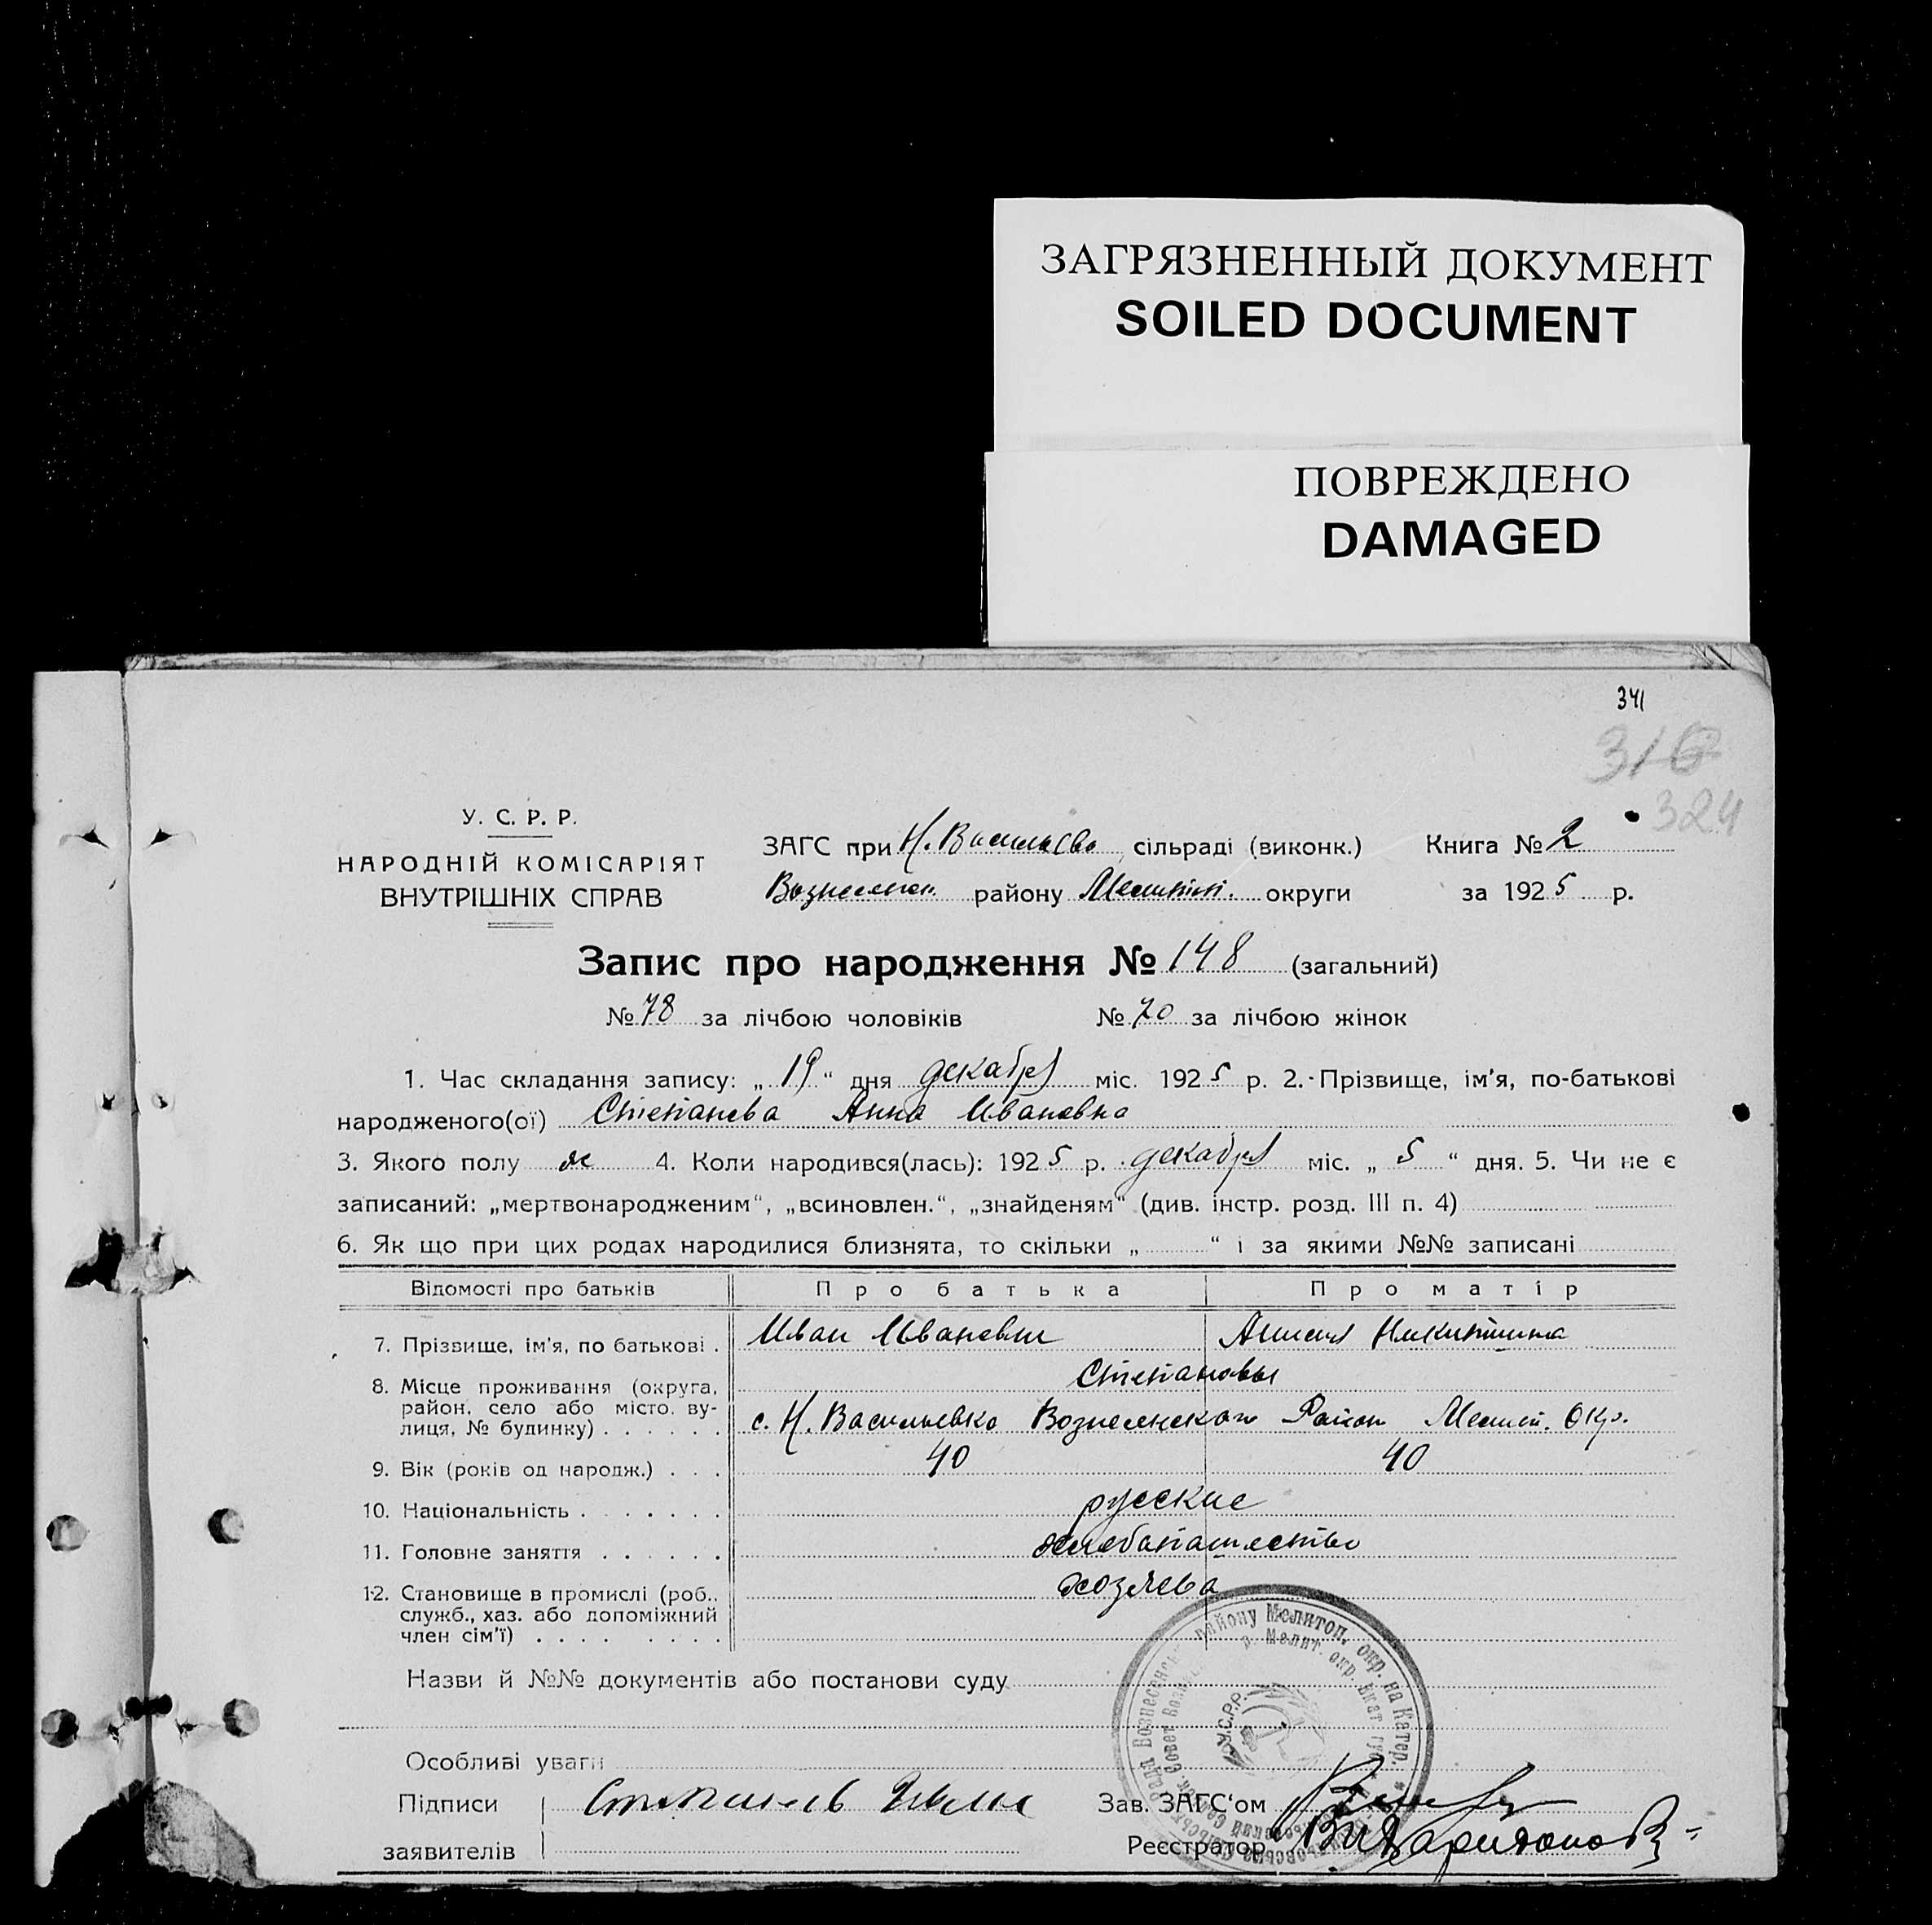 ЗАГРЯЗНЕННЫЙ ДОКУМЕНТ
SOILED DOCUMENT
ПОВРЕЖДЕНО
DAMAGED
341
316
324
У. С. Р. Р.
НАРОДНІЙ КОМІСАРІЯТ
ВНУТРІШНІХ СПРАВ
ЗАГС при Н. Васильево сільраді (виконк.) Книга № 2
Вознесенск. району Мелитоп. округи за 1925 р.
Запис про народження № 148 (загальний)
№ 78 за лічбою чоловіків № 70 за лічбою жінок
1. Час складання запису: „19“ дня декабря міс. 1925 р. 2. Прізвище, ім'я, по-батькові
народженого(ої) Степанова Анна Ивановна
3. Якого полу ж 4. Коли народився(лась): 1925 р. декабря міс. „5“ дня. 5. Чи не є
записаний: „мертвонародженим“, „всиновлен.“, „знайденям“ (див. інстр. розд. III п. 4)
6. Як що при цих родах народилися близнята, то скільки „ “ і за якими №№ записані
Відомості про батьків Про батька Про матір
7. Прізвище, ім'я, по батькові . Иван Иванович Анисия Никитична
Степановы
8. Місце проживання (округа,
район, село або місто, ву-
лиця, № будинку) . . . . . . с. Н. Васильевка Вознесенского Район Мелит. Окр.
9. Вік (років од народж.) . . . 40 40
10. Національність . . . . . . . русские
11. Головне заняття . . . . . . хлебопашество
12. Становище в промислі (роб.. хозяева
служб., хаз. або допоміжний
член сім'ї) . . . . . . . .
Назви й №№ документів або постанови суду
Особливі уваги
Підписи Степанов Иван Зав. ЗАГС'ом
заявителів Реєстратор В. Харитонов
району Мелитоп. окр. на Катер.
р. Мелит. окр. Екат. губ.
У.С.Р.Р.